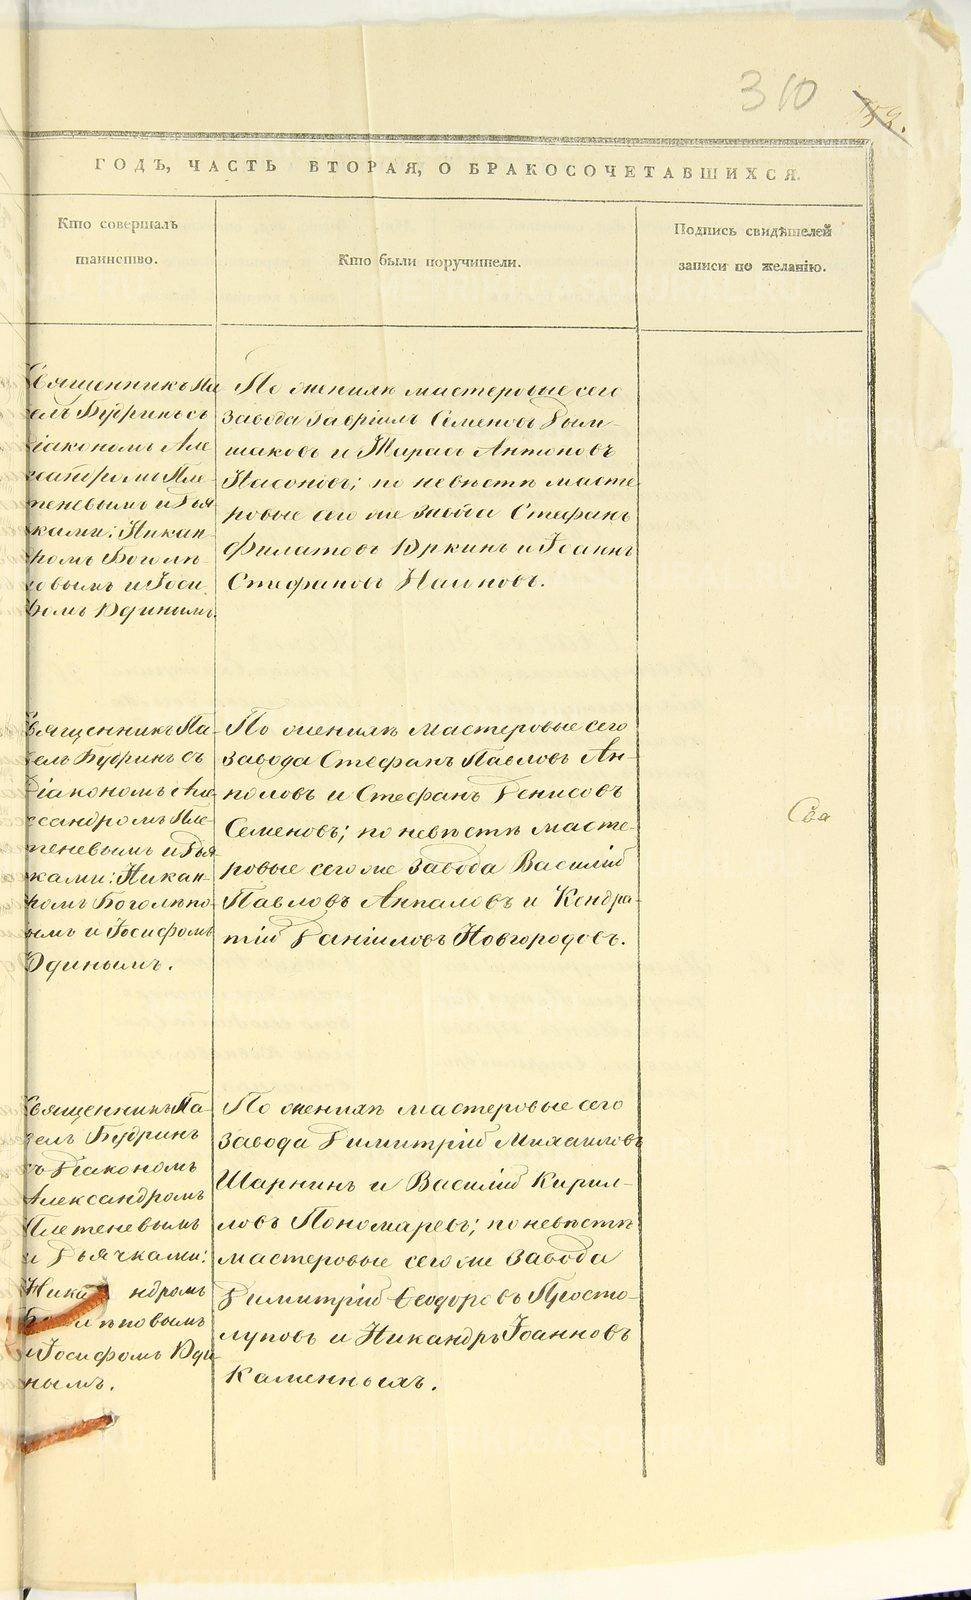 310
59.
ГОДЪ, ЧАСТЬ ВТОРАЯ, О БРАКОСОЧЕТАВШИХСЯ.
Кто совершалъ
таинство.
Кто были поручители.
Подпись свидѣтелей
записи по желанію.
Священникъ Па
велъ Будринъ съ
Діакономъ Але
ксандромъ Пле-
теневымъ и Дья
ками: Никан-
ромъ Боголѣ
повымъ и Іоси
фомъ Юдинымъ.
По женихѣ мастеровые сего
завода Гавріилъ Семеновъ
шаковъ и Тарасъ Антоновъ
Насоновъ; по невѣстѣ масте
ровые сего же завода Стефанъ
Филатовъ Юркинъ и Іоаннъ
Стефановъ
Священникъ Па-
велъ Будринъ съ
Діакономъ Але
ксандромъ Пле-
теневымъ и Дья
ками: Никан-
ромъ Боголѣпо
вымъ и Іосифомъ
Юдинымъ.
По женихѣ мастеровые сего
завода Стефанъ Павловъ Ан-
половъ и Стефанъ Денисовъ
Семеновъ; по невѣстѣ масте-
ровые сего же завода Василій
Павловъ Анпаловъ и Кондра-
тій Даніиловъ Новгородовъ.
Сва
Священникъ Па-
велъ Будринъ
съ Діакономъ
Александромъ
Плетеневымъ
и Дьячками:
Ника ндромъ
лѣповымъ
и Іосифомъ Юди
нымъ.
По женихѣ мастеровые сего
завода Димитрій Михаиловъ
Шарнинъ и Василій Кирил-
ловъ Пономаревъ; по невѣстѣ
мастеровые сего же завода
Димитрій Ѳеодоровъ Просто-
луповъ и Никандръ Іоанновъ
Каменныхъ.
METRIKI.GASO-URAL.RU